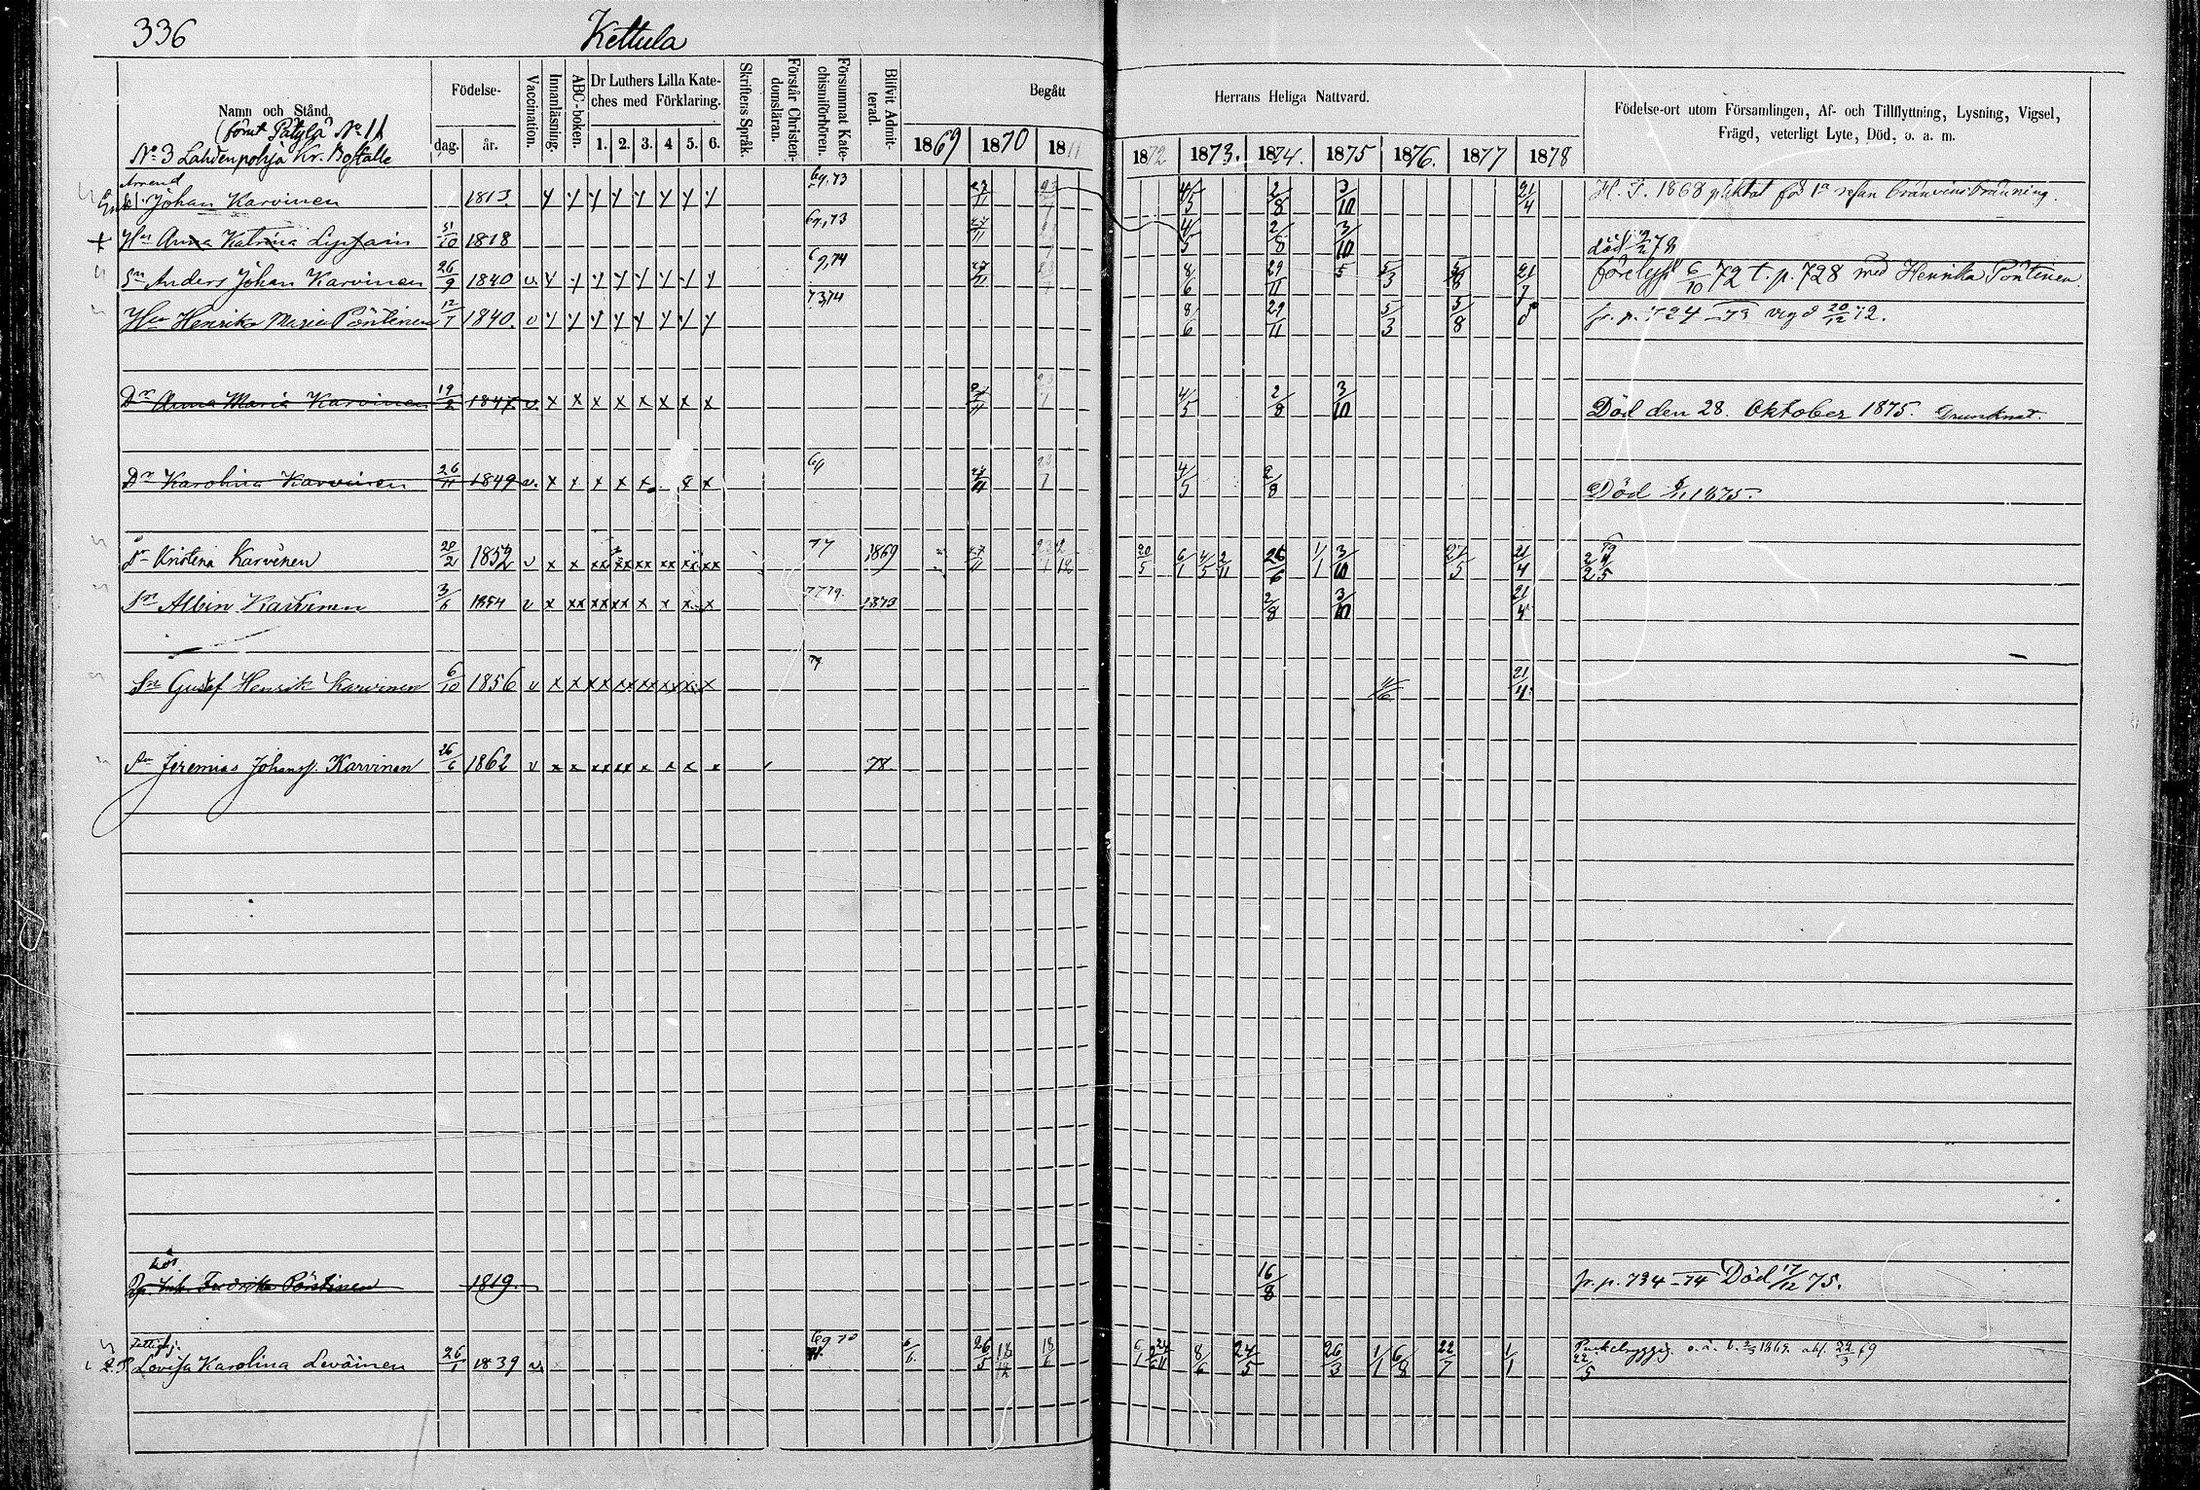 336 Kettula
Namn och Stånd.
(förut Pätylä No 11
No 3 Lahdenpohja Kr. Boställe
Födelse-
dag. år.
Vaccination.
Innanläsning.
ABC-boken.
Dr Luthers Lilla Kate-
ches med Förklaring.
1. 2. 3. 4 5. 6.
Skriftens Språk.
Förstår Christen-
domsläran.
Försummat Kate-
chismiförhören.
Blifvit Admit-
terad.
Begått Herrans Heliga Nattvard.
1869 1870 1871 1872 1873. 1874. 1875 1876. 1877 1878
Födelse-ort utom Församlingen, Af- och Tillflyttning, Lysning, Vigsel,
Frägd, veterligt Lyte, Död, o. a. m.
Arrend
Johan Karvinen 1813 y y y y y y y y 69,73 27/11 4/5 2/8 3/10 21/4 H. T. 1868 pliktat för 1a resan bränvinsbränning.
+ Hu Anna Katrina 31/10 1818 69,73 27/11 4/5 2/8 3/10 död 78
Sn Anders Johan Karvinen 26/9 1840 v. y y y y y y y y 69,74 27/11 8/6 29/11 5 5/3 5/8 21/7 förelyst 6/10 72 t. p. 728 med Henrika Pöntinen
Hu Henrika Maria Pöntinen 12/7 1840. v y y y y y y y y 73,74 8/6 29/11 5/3 5/8 fr. p. 724 -73 vigd 20/12 72.
Dr Anna Maria Karvinen 19/2 1847 v. x x x x x x x x 27/11 4/5 2/8 3/10 Död den 28. Oktober 1875. Drunknat.
Dr Karolina Karvinen 26/11 1849 v. x x x x x x x 69 27/11 4/5 2/8 Död 1875.
Dr Kristina Karvinen 20/2 1852 v x x xx xx xx xx xx xx 77 1869 27/11 20/5 6/1 4/5 2/11 26/6 1/1 3/10 27/5 21/4
Sn Albin Karvinen 3/6 1854 v x xx xx xx x x x x 77 79. 1873 2/8 3/10 21/4
Sn Gustaf Henrik Karvinen 6/10 1856 v x x xx xx xx xx x x 79 4/6 21/4
Sn Jeremias Johanss. Karvinen 26/6 1862 v x x xx xx x x x x 78
Fredrika Pöntinen 1819. 16/8 fr. p. 734 -74 Död 17/12 75.
Fattighj.
Lovisa Karolina Leväinen 26/1 1839 v. 69 70 6/6 26/5 18/12 18/6 8/6 24/5 26/3 1/1 6/8 22/7 1/1 Puckelryggig. 22/3 69
22/5